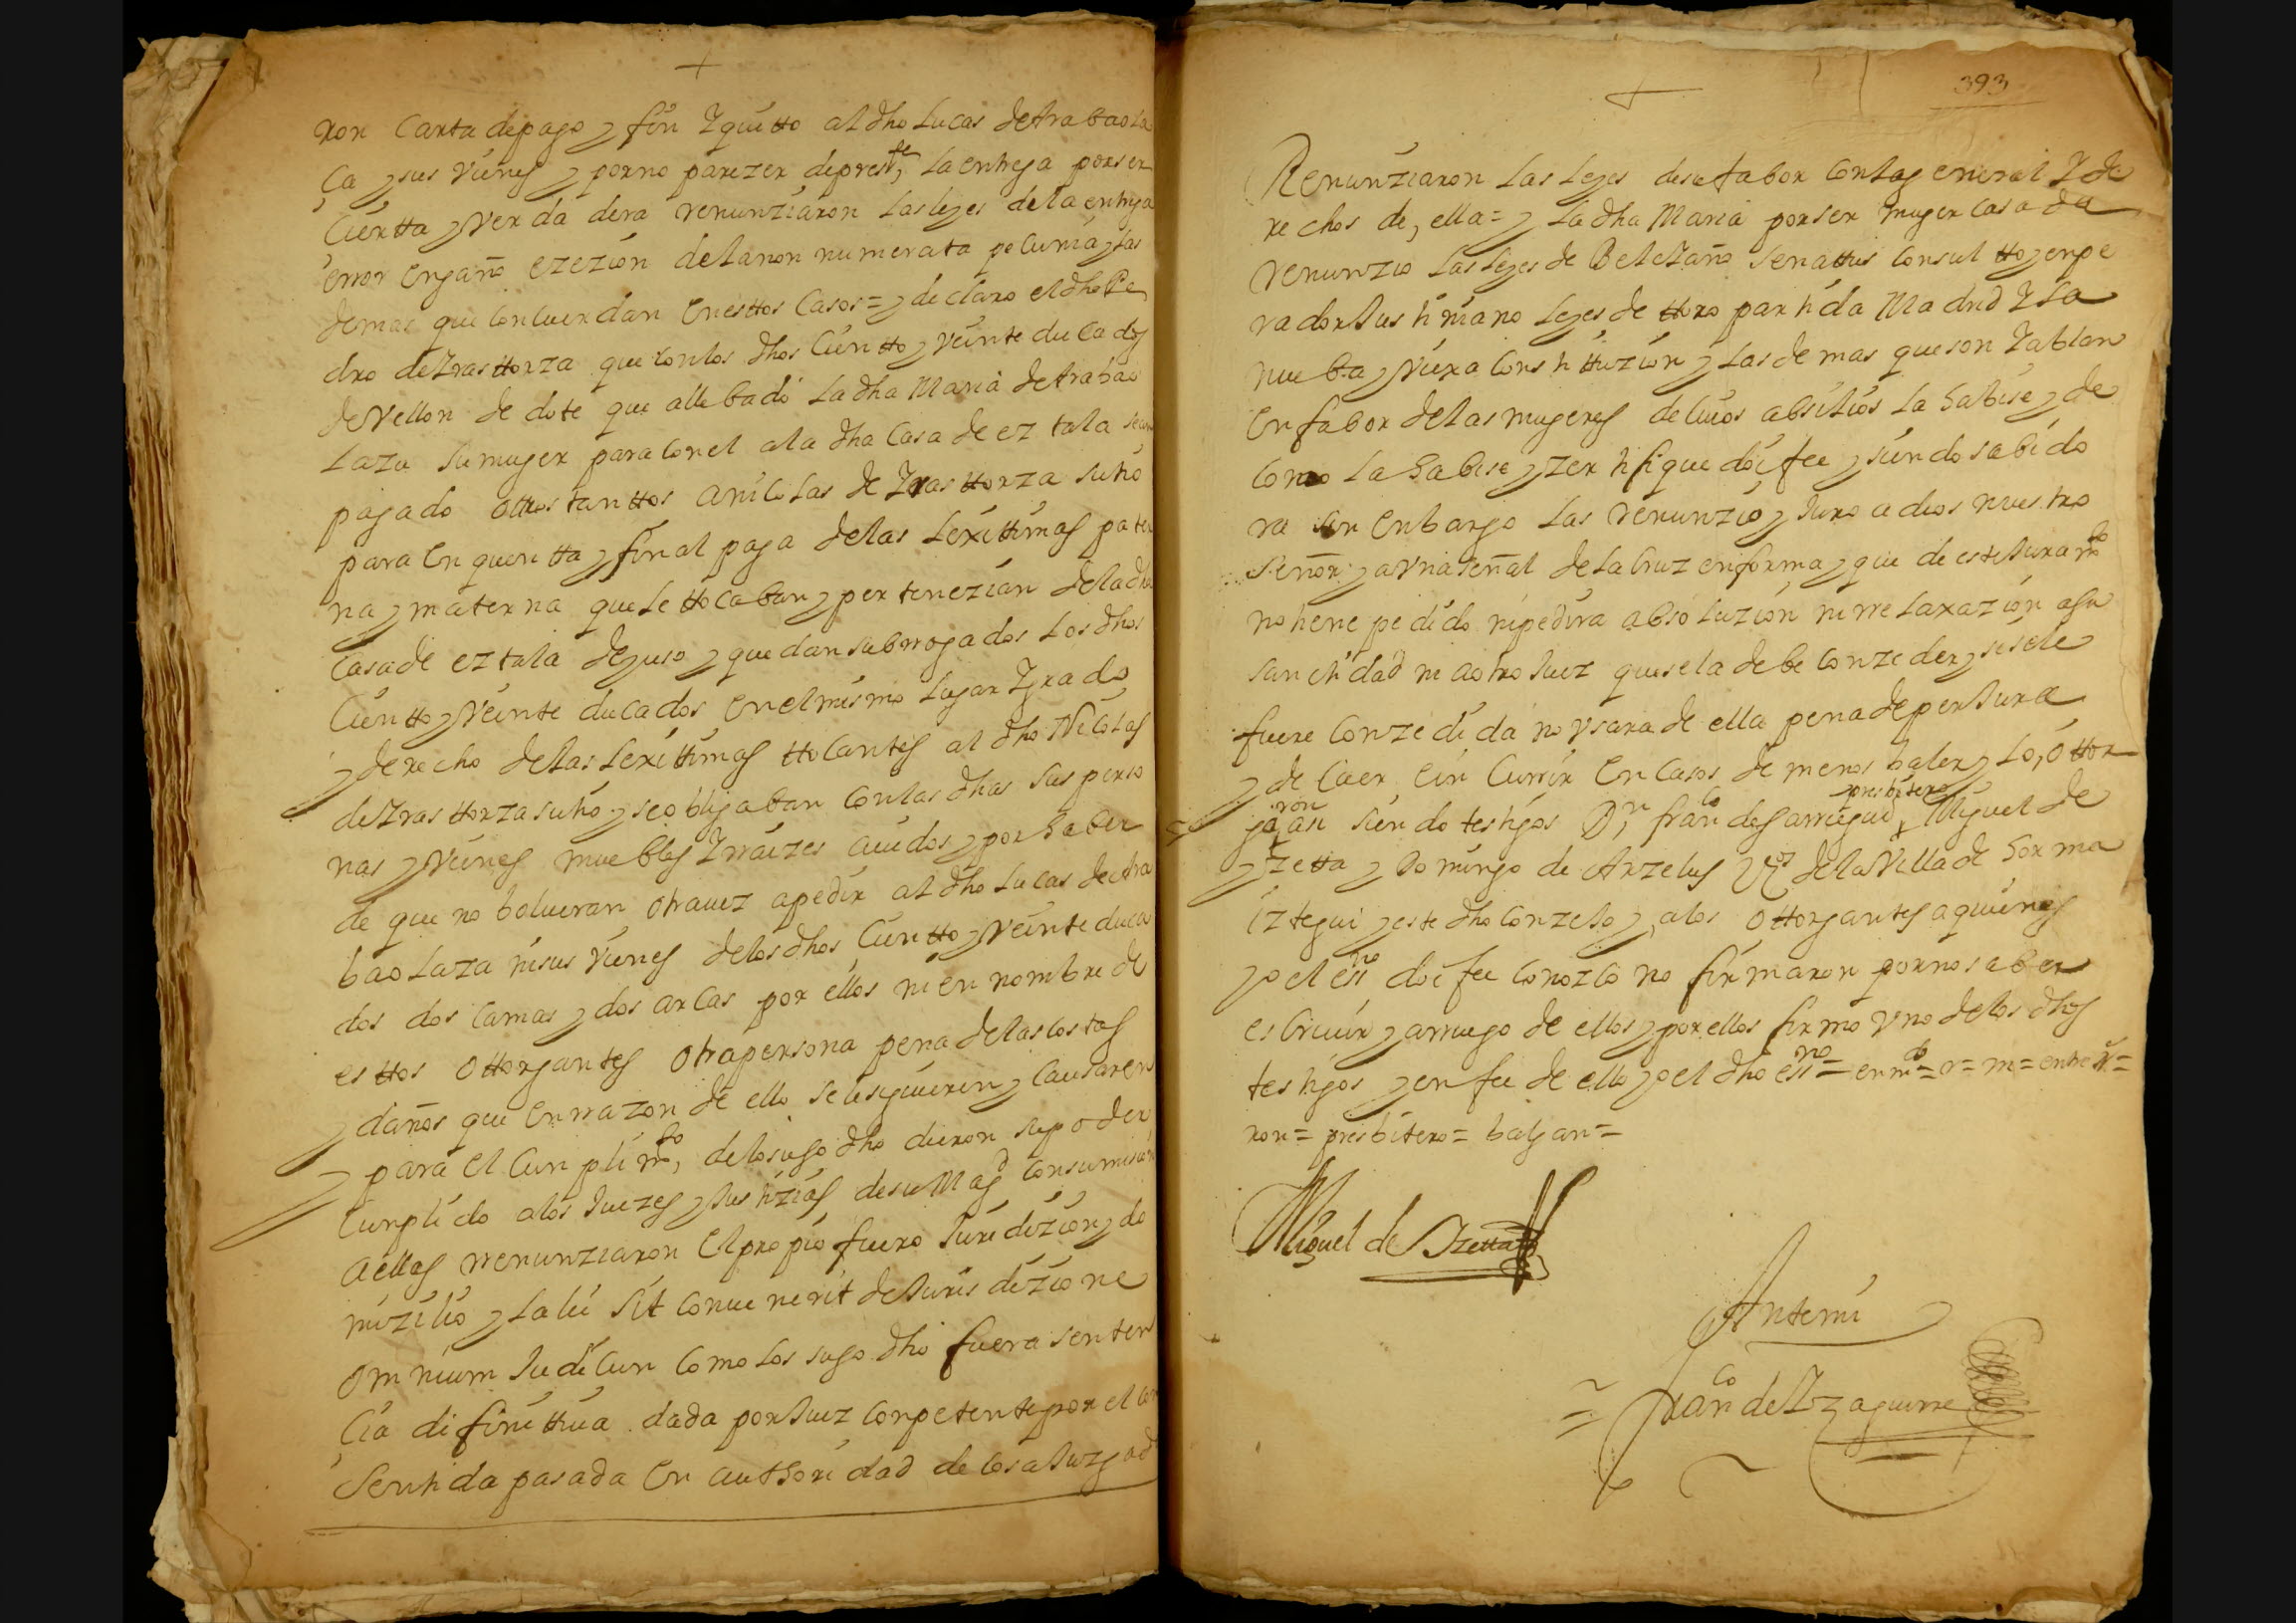 ron carta de pago y fin y quitto al dho Lucas de Arabaola
ça y sus vienes y por no parezer de pres^te la entrega por ser
cierta y verdadera renunziaron las leyes de la entrega
error engaño ezezion de la non numerata pecunia y las
demas que concuerdan en esttos casos = y declaro el dho Pe
dro de Yrasttorza que con los dhos cientto y veinte ducados
de vellon de dote que alle bado la dha Maria de Arabao
laza su muger para con el a la dha casa de eztala
pagado ottros tanttos a Nicolas de Yrasttorza su hijo
para en quentta y final paga de las lexittimas pater
na y materna que le ttocaban y pertenezian de la dha
casa de eztala de yuso y quedan subrrogados los dhos
cientto y veinte ducados en el mismo lugar y grado
y derecho de las lexittimas ttocantes al dho Nicolas
de Yrasttorza su hijo y se obligaban con las dhas sus perso
nas y vienes muebles y rraizes auidos y por haber
de que no bolueran otra uez a pedir al dho Lucas de Ara
baolaza ni sus vienes de los dhos cientto y veinte duca
dos dos camas y dos arcas por ellos ni en nombre de
esttos ottorgantes otra persona pena de las costas
y daños que en rrazon de ello se le siguieren y causaren
y para el cunplim^to de lo suso dho dieron su poder
cunplido a los Juezes y Justizias de su Mag^d con sumision
a ellas rrenunziaron el propio fuero Juridizion y do
mizilio y la lei sit conuenerit de Jurisdizione
omnium Judicun como los suso dho fuera senten
cia difinittiua dada por Juez conpetente por el con
sentida pasada en authoridad de cosa Juzgad
393
Renunziaron las leyes de su fabor con la general y de
rechos de ella = y la dha Maria por ser muger casada
renunzio las leyes de Beleiaño senattus consultto y enpe
rador Justiniano leyes de ttoro partida Madrid y la
nueba y vieja constittuzion y las demas que son y ablan
en fabor de las mugeres de cuios absilios la habise y de
como la habise y zertifique doi fee y siendo sabido
ra sin enbargo las renunzio y Juro a dios nuestro
señor y a vna señal de la cruz en forma y que de este Juram^to
no tiene pedido ni pedira absoluzion ni rrelaxazion a su
santidad ni a otro Juez que se la debe conzeder y si se le
fuere conzedida no vsara de ella pena de perJura
y de caer e in currir en casos de menos baler y lo ottor
garon asi siendo testigos D^n fran^co de Garriegui presbitero Miguel de
Yzetta y Domingo de Arzelus v^os de la Villa de horma
iztegui y este dho conzeJo y a los ottorgantes a quienes
yo el ess^no doi fee conozco no firmaron por no saber
escriuir y a rruego de ellos y por ellos firmo vno de los dhos
testigos y en fee de ello yo el dho ess^no = enm^do = r = m = entre R^s =
ron = presbitero = balgan =
Miguel de Yzetta
Ante mi
Fran^co de Yzaguirre